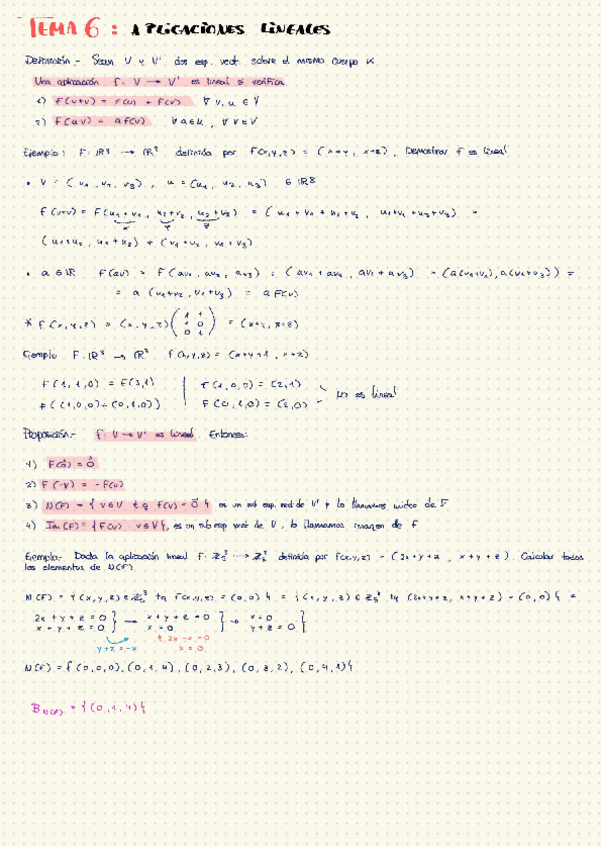 TEMA 6 : APLICACIONES LINEALES
Definición.- Sean V y V' dos esp. vect. sobre el mismo cuerpo K.
Una aplicación f: V → V' es lineal si verifica
1) F(u+v) = F(u) + F(v) ∀ v, u ∈ V
2) F(av) = aF(v) ∀ a ∈ K, ∀ v ∈ V
Ejemplo: F: ℝ³ → ℝ² definida por F(x,y,z) = (x+y, x+z). Demostrar f es lineal
• v = (v₁, v₂, v₃), u = (u₁, u₂, u₃) ∈ ℝ3
F(u+v) = F(u₁+v₁, u₂+v₂, u₃+v₃) = (u₁+v₁+u₂+v₂, u₁+v₁+u₃+v₃) =
x y z
(u₁+u₂, u₁+u₃) + (v₁+v₂, v₁+v₃)
• a ∈ ℝ F(av) = F(av₁, av₂, av₃) = (av₁+av₂, av₁+av₃) = (a(v₁+v₂), a(v₁+v₃)) =
= a (v₁+v₂, v₁+v₃) = aF(v)
* F(x,y,z) = (x,y,z) (1 1
1 0
0 1) = (x+y, x+z)
Ejemplo F: ℝ³ → ℝ² f(x,y,z) = (x+y+1, x+z)
F(1,1,0) = F(3,1) | F(1,0,0) = (2,1)
F((1,0,0)+(0,1,0)) | F(0,1,0) = (2,0) no es lineal
Proposición.- f: V → V' es lineal. Entonces:
1) F(0) = 0
2) F(-v) = -F(v)
3) N(F) = { v ∈ V tq F(v) = 0 } es un sub esp. vect. de V' y lo llamamos núcleo de F
4) Im(F) = { F(v) : v ∈ V }, es un sub esp vect de V, lo llamamos imagen de F
Ejemplo.- Dada la aplicación lineal F: ℤ₅³ → ℤ₅² definida por F(x,y,z) = (2x+y+z, x+y+z). Calcular todos
los elementos de N(F)
N(F) = {(x,y,z) ∈ ℤ₅³ tq F(x,y,z) = (0,0)} = {(x,y,z) ∈ ℤ₅³ tq (2x+y+z, x+y+z) = (0,0)} =
2x+y+z=0 } → x+y+z=0 } → x=0 }
x+y+z=0 } x=0 } y+z=0 }
y+z=-x 2x-x=0
x=0
N(F) = {(0,0,0), (0,1,4), (0,2,3), (0,3,2), (0,4,1)}
B N(F) = {(0,1,4)}